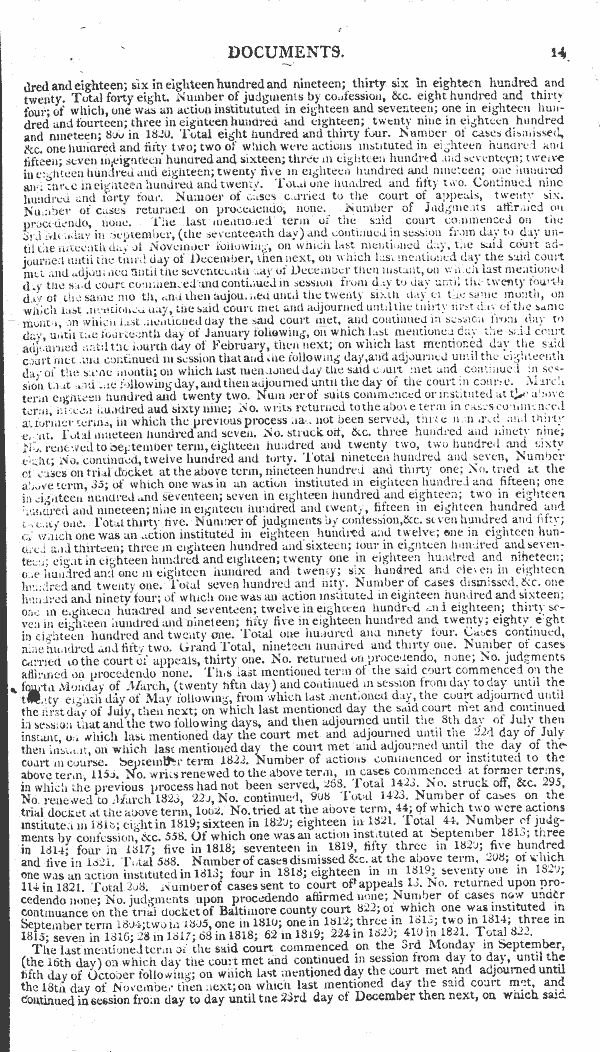 DOCUMENTS. 14
dred and eighteen; six in eighteen hundred and nineteen; thirty six in eighteen hundred and
twenty. Total forty eight. Number of judgments by confession, &c. eight hundred and thirty
four; of which, one was an action institututed in eighteen and seventeen; one in eighteen hun-
dred and fourteen; three in eighteen hundred and eighteen; twenty nine in eighteen hundred
and nineteen; 800 in 1820. Total eight hundred and thirty four. Number of cases dismissed,
&c. one hundred and fifty two; two of which were actions instituted in eighteen hundred and
fifteen; seven in eighteen hundred and sixteen; three in eighteen hundred and seventeen; twelve
in eighteen hundred and eighteen; twenty five in eighteen hundred and nineteen; one hundred
and three in eighteen hundred and twenty. Total one hundred and fifty two. Continued nine
hundred and forty four. Number of cases carried to the court of appeals, twenty six.
Number of cases returned on procedendo, none. Number of Judgments affirmed on
procedendo, none. The last mentioned term of the said court commenced on the
3rd Monday in September, (the seventeenth day) and continued in session from day to day un-
til the nineteenth day of November following, on which last mentioned day, the said court ad-
journed until the third day of December, then next, on which last mentioned day the said court
met and adjourned until the seventeenth day of December then instant, on which last mentioned
day the said court commenced and continued in session from day to day until the twenty fourth
day of the same month, and then adjourned until the twenty sixth day of the same month, on
which last mentioned day, the said court met and adjourned until the thirty first day of the same
month, on which last mentioned day the said court met, and continued in session from day to
day, until the fourteenth day of January following, on which last mentioned day the said court
adjourned until the fourth day of February, then next; on which last mentioned day the said
court met and continued in session that and the following day, and adjourned until the eighteenth
day of the same month; on which last mentioned day the said court met and continued in ses-
sion that and the following day, and then adjourned until the day of the court in course. March
term eighteen hundred and twenty two. Number of suits commenced or instituted at the above
term, hundred aud sixty nine; No. writs returned to the above term in cases commenced
at former terms, in which the previous process had not been served, three hundred and thirty
eight. Total nineteen hundred and seven. No. struck off, &c. three hundred and ninety nine;
No. renewed to September term, eighteen hundred and twenty two, two hundred and sixty
eight; No. continued, twelve hundred and forty. Total nineteen hundred and seven, Number
of cases on trial docket at the above term, nineteen hundred and thirty one; No. tried at the
above term, 35; of which one was in an action instituted in eighteen hundred and fifteen; one
in eighteen hundred and seventeen; seven in eighteen hundred and eighteen; two in eighteen
hundred and nineteen; nine in eighteen hundred and twenty, fifteen in eighteen hundred and
twenty one. Total thirty five. Number of judgments by confession, &c. seven hundred and fifty;
of which one was an action instituted in eighteen hundred and twelve; one in eighteen hun-
dred and thirteen; three in eighteen hundred and sixteen; four in eighteen hundred and seven-
teen; eight in eighteen hundred and eighteen; twenty one in eighteen hundred and nineteen;
one hundred and one in eighteen hundred and twenty; six hundred and eleven in eighteen
hundred and twenty one. Total seven hundred and fifty. Number of cases dismissed, &c. one
hundred and ninety four; of which one was an action instituted in eighteen hundred and sixteen;
one in eighteen hundred and seventeen; twelve in eighteen hundred and eighteen; thirty se-
ven in eighteen hundred and nineteen; fifty five in eighteen hundred and twenty; eighty eight
in eighteen hundred and twenty one. Total one hundred and ninety four. Cases continued,
nine hundred and fifty two. Grand Total, nineteen hundred and thirty one. Number of cases
carried to the court of appeals, thirty one. No. returned on procedendo, none; No. judgments
affirmed on procedendo none. This last mentioned term of the said court commenced on the
fourth Monday of March, (twenty fifth day) and continued in session from day to day until the
twenty eighth day of May following, from which last mentioned day, the court adjourned until
the first day of July, then next; on which last mentioned day the said court met and continued
in session that and the two following days, and then adjourned until the 8th day of July then
instant, on which last mentioned day the court met and adjourned until the 22d day of July
then instant, on which last mentioned day the court met and adjourned until the day of the
court in course. September term 1822. Number of actions commenced or instituted to the
above term, 1155. No. writs renewed to the above term, in cases commenced at former terms,
in which the previous process had not been served, 268. Total 1423. No. struck off, &c. 295,
No. renewed to March 1823, 220, No. continued, 908 Total 1423. Number of cases on the
trial docket at the above term, 1662. No. tried at the above term, 44; of which two were actions
instituted in 1818; eight in 1819; sixteen in 1820; eighteen in 1821. Total 44. Number of judg-
ments by confession, &c. 558. Of which one was an action instituted at September 1813; three
in 1814; four in 1817; five in 1818; seventeen in 1819, fifty three in 1820; five hundred
and five in 1821. Total 588. Number of cases dismissed &c. at the above term, 208; of which
one was an action instituted in 1813; four in 1818; eighteen in in 1819; seventy one in 1820;
114 in 1821. Total 208. Number of cases sent to court of appeals 13. No. returned upon pro-
cedendo none; No. judgments upon procedendo affirmed none; Number of cases now under
continuance on the trial docket of Baltimore county court 822; of which one was instituted in
September term 1804; two in 1805, one in 1810; one in 1812; three in 1813; two in 1814; three in
1815; seven in 1816; 28 in 1817; 68 in 1818; 62 in 1819; 224 in 1820; 410 in 1821. Total 822.
The last mentioned term of the said court commenced on the 3rd Monday in September,
(the 16th day) on which day the court met and continued in session from day to day, until the
fifth day of October following; on which last mentioned day the court met and adjourned until
the 18th day of November then next; on which last mentioned day the said court met, and
continued in session from day to day until the 23rd day of December then next, on which said